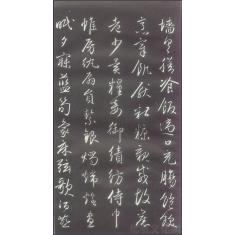 墻具膳飡飯適口充腸飽飫
烹宰飢猒糟糠親戚故舊
老少異糧妾御績紡侍巾
帷房紈扇員絜銀燭煒煌晝
眠夕寐藍笋象床弦歌酒讌